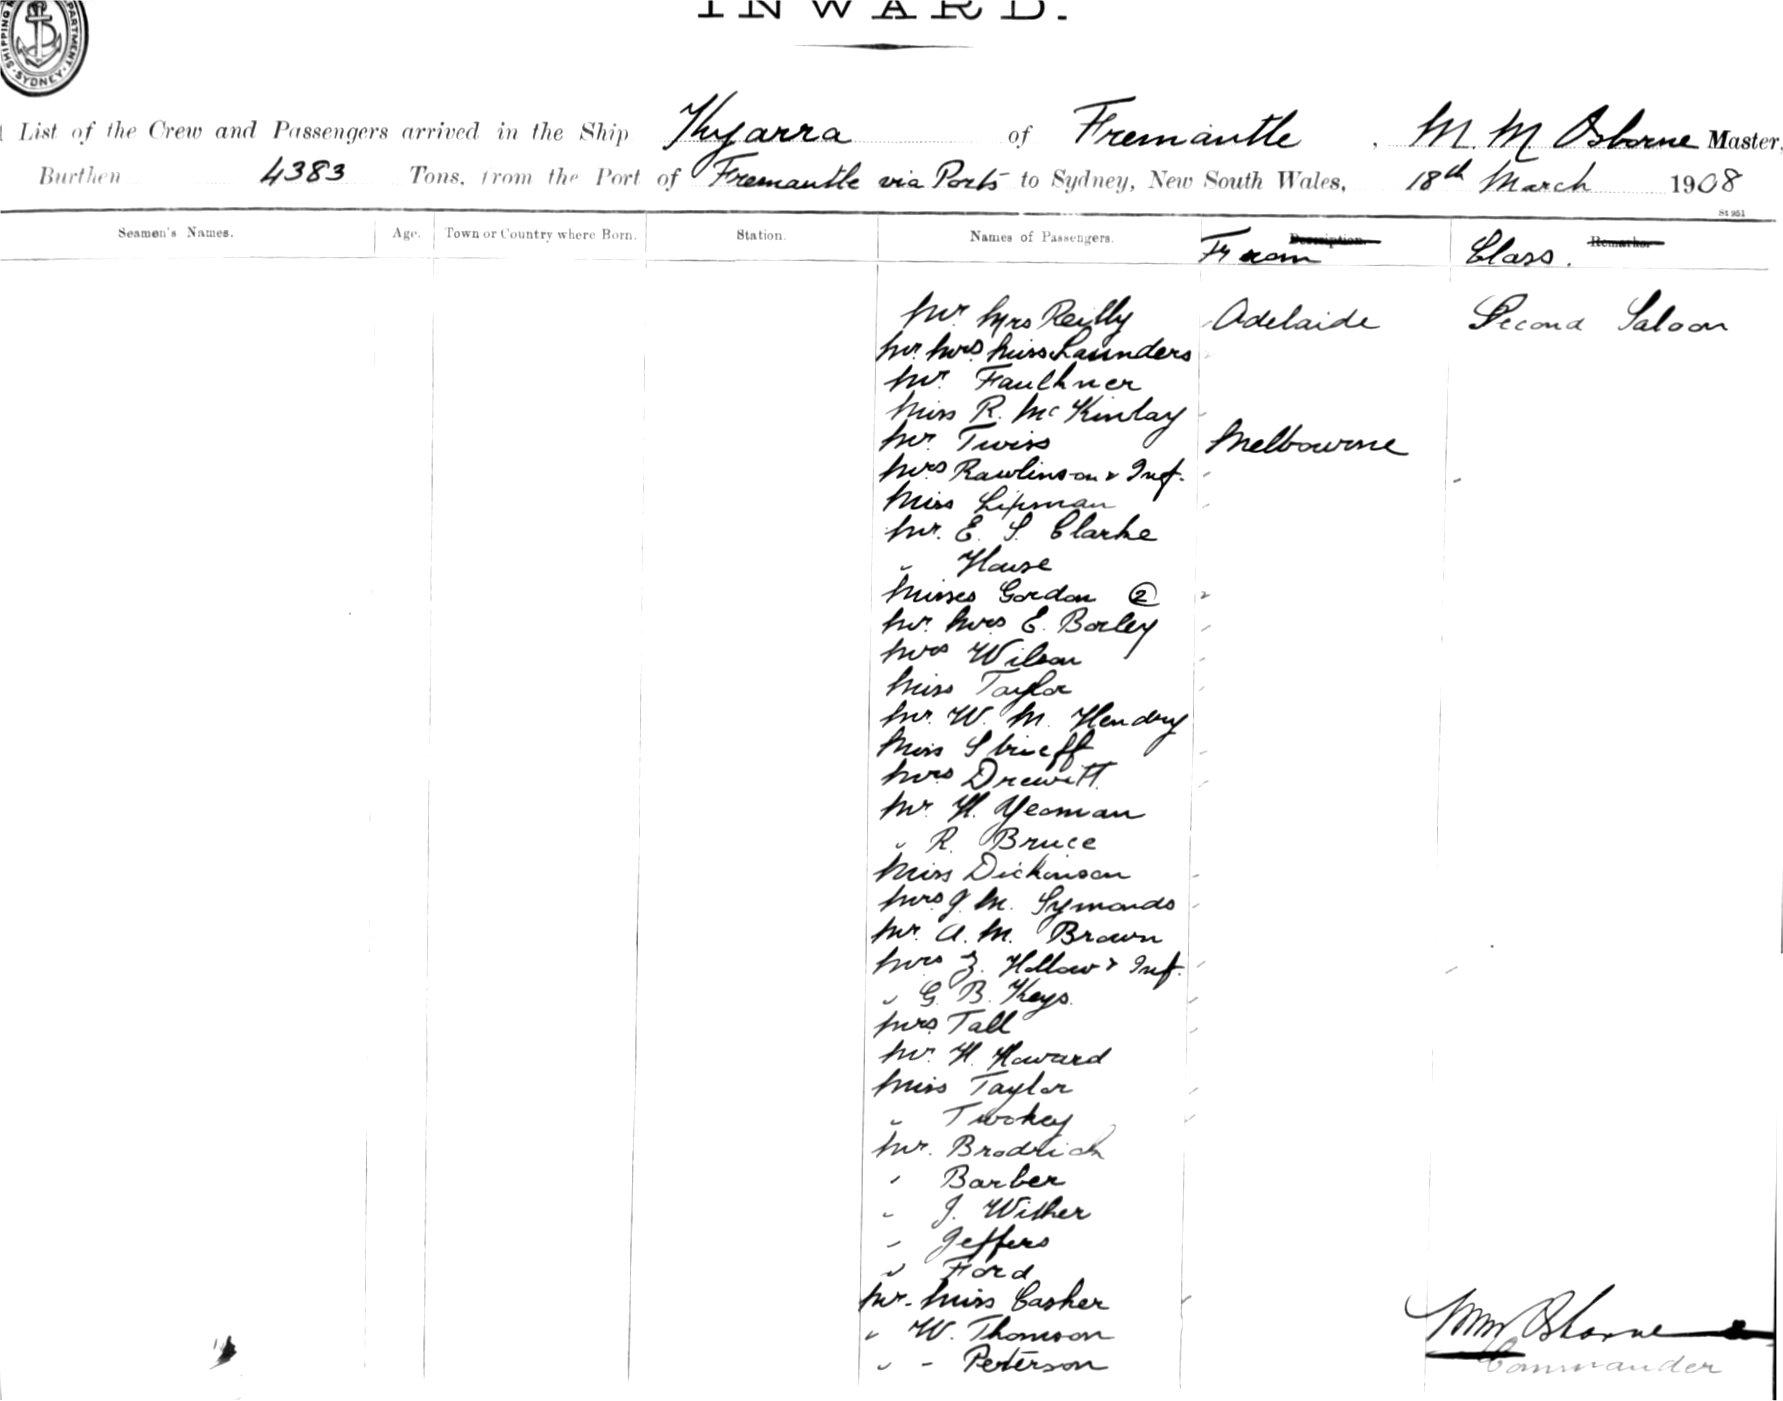 INWARD.
SHIPPING DEPARTMENT SYDNEY
List of the Crew and Passengers arrived in the Ship Kyarra of Fremantle, M. M. Osborne Master,
Burthen 4383 Tons, from the Port of Fremantle via Ports to Sydney, New South Wales, 18th March 1908
St 951
Seamen's Names. Age. Town or Country where Born. Station. Names of Passengers. Description. Remarks.
From Class.
Mr. Mrs Reilly Adelaide Second Saloon
Mr. Mrs. Miss Saunders
Mr. Faulkner
Miss R. McKinlay
Mr. Twiss Melbourne
Mrs Rawlinson & Inf.
Miss Lipman
Mr. E. S. Clarke
" House
Misses Gordon 2
Mr. Mrs E. Borley
Mrs Wilson
Miss Taylor
Mr. W. M. Hendry
Miss
Mrs Drewitt
Mr. H. Yeoman
" R. Bruce
Miss Dickinson
Mrs J. M. Symonds
Mr. A. M. Brown
Mrs Z. Hollow & Inf.
" G. B. Keys.
Mrs Tall
Mr. H. Howard
Miss Taylor
" Twohey
Mr. Brodrick
" Barber
" J. Wither
" Jeffers
" Ford
Mr. Miss Casher
" W. Thomson
" - Peterson
MM Osborne
Commander